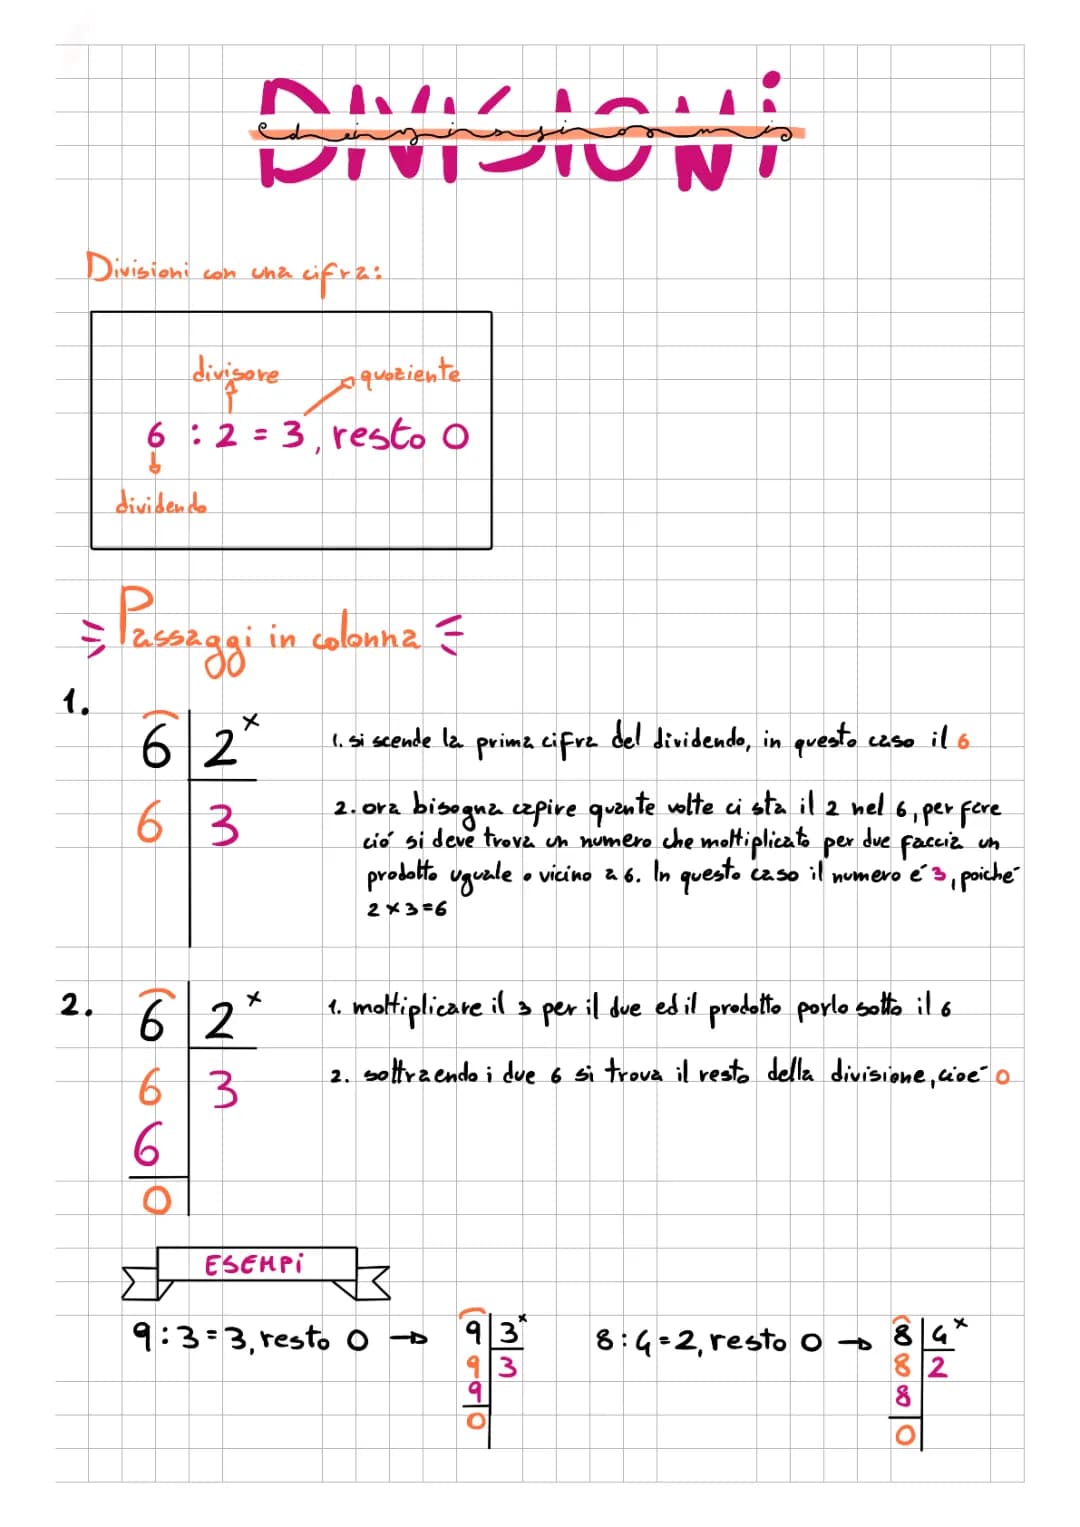 DIVISIONI
divisioni
Divisioni con una cifra:
divisore
quoziente
6 : 2 = 3, resto 0
dividendo
Passaggi in colonna
1.
6 2 x
6 3
1. si scende la prima cifra del dividendo, in questo caso il 6
2. ora bisogna capire quante volte ci sta il 2 nel 6, per fare
ció si deve trova un numero che moltiplicato per due faccia un
prodotto uguale o vicino a 6. In questo caso il numero é 3, poiché
2 x 3 = 6
2.
6 2 x
6 3
6
0
1. moltiplicare il 3 per il due ed il prodotto porlo sotto il 6
2. sottraendo i due 6 si trova il resto della divisione, cioé 0
ESEMPI
9 : 3 = 3, resto 0 →
9 3 x
9 3
9
0
8 : 4 = 2, resto 0 →
8 4 x
8 2
8
0